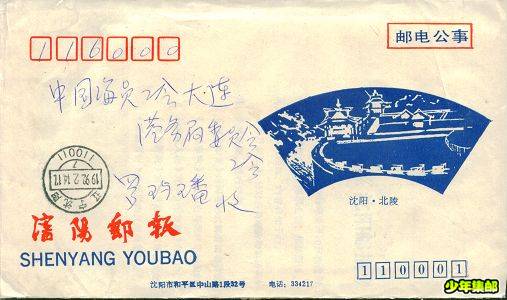 116000
邮电公事
中国海员工会大连
港务局委员会
工会
罗
收
沈阳·北陵
110011
7
1992.2.14.17
辽宁 沈阳
瀋陽郵報
SHENYANG YOUBAO
沈阳市和平区中山路1段92号 电话:334217
110001
少年集邮